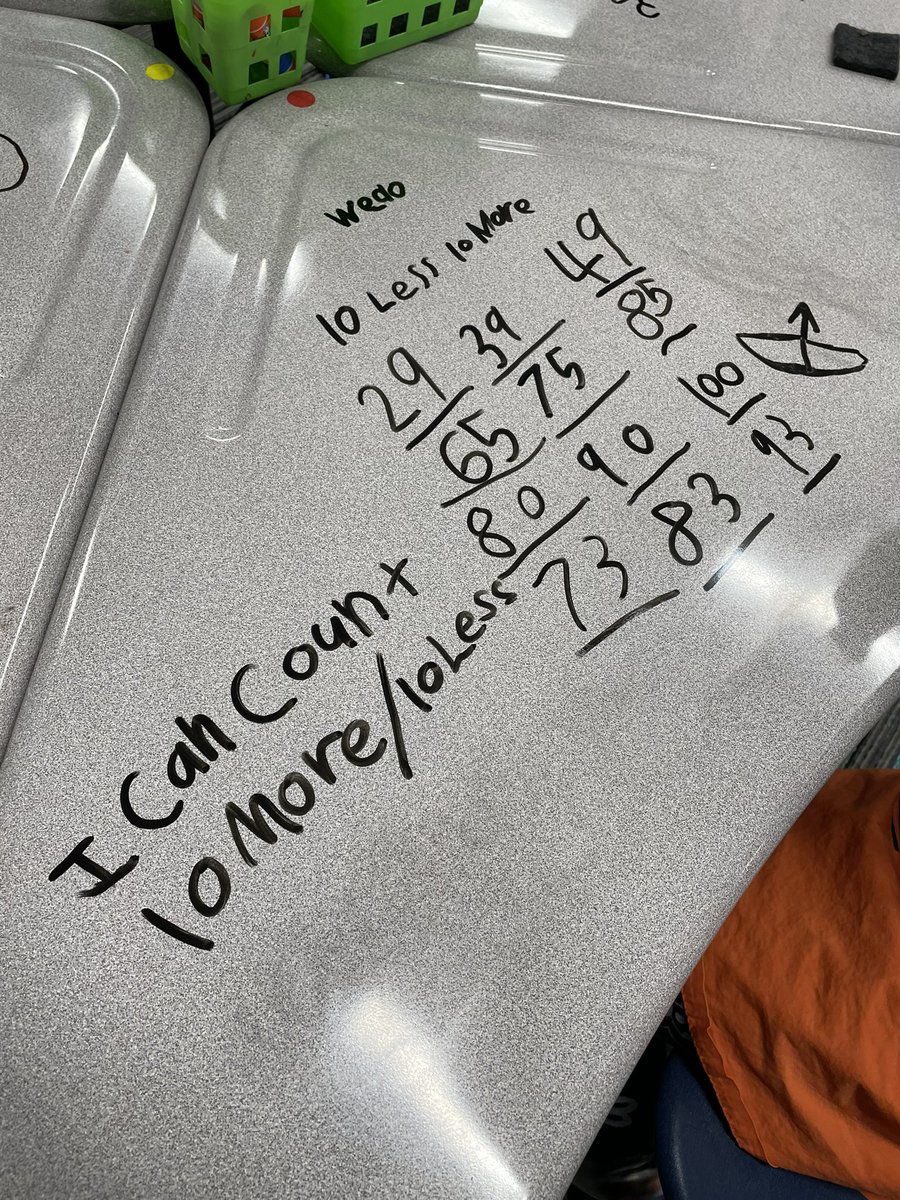 Wedo
10 Less 10 More
29 39 49
65 75 85
80 90 100
73 83 93
I Can Count
10 More/10 Less